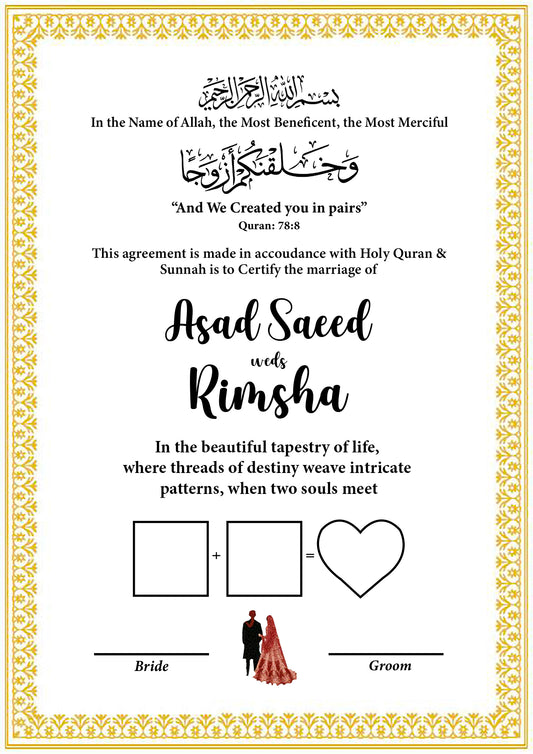 بسم الله الرحمن الرحيم
In the Name of Allah, the Most Beneficent, the Most Merciful
وَخَلَقْنَكُمْ أَزْوَجًا
“And We Created you in pairs”
Quran: 78:8
This agreement is made in accoudance with Holy Quran &
Sunnah is to Certify the marriage of
Asad Saeed
weds
Rimsha
In the beautiful tapestry of life,
where threads of destiny weave intricate
patterns, when two souls meet
+ =
Bride Groom